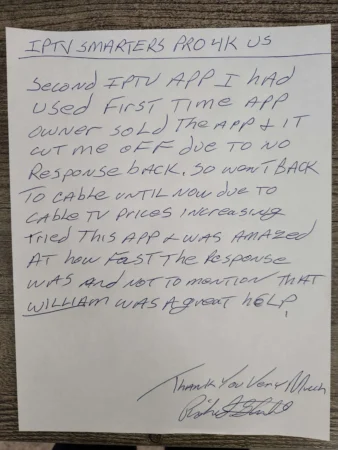 IPTV SMARTERS PRO 4K US
SECOND IPTV APP I HAD
USED FIRST TIME APP
OWNER SOLD THE APP & IT
CUT ME OFF DUE TO NO
RESPONSE BACK. SO WENT BACK
TO CABLE UNTIL NOW DUE TO
CABLE TV PRICES INCREASING
TRIED THIS APP & WAS AMAZED
AT HOW FAST THE RESPONSE
WAS AND NOT TO MENTION THAT
WILLIAM WAS A great HELP!
Thank You Very Much